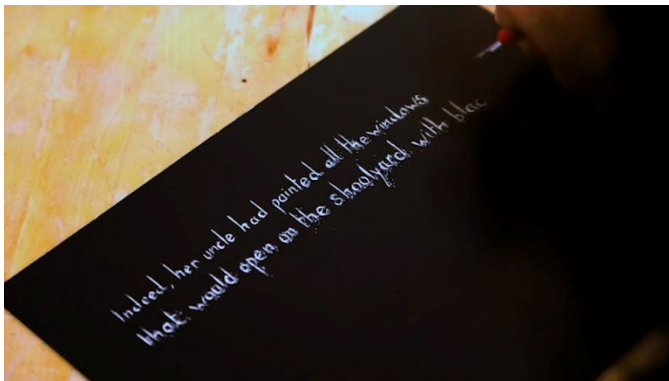 Indeed, her uncle had painted all the windows
that would open on the shoolyard with blac